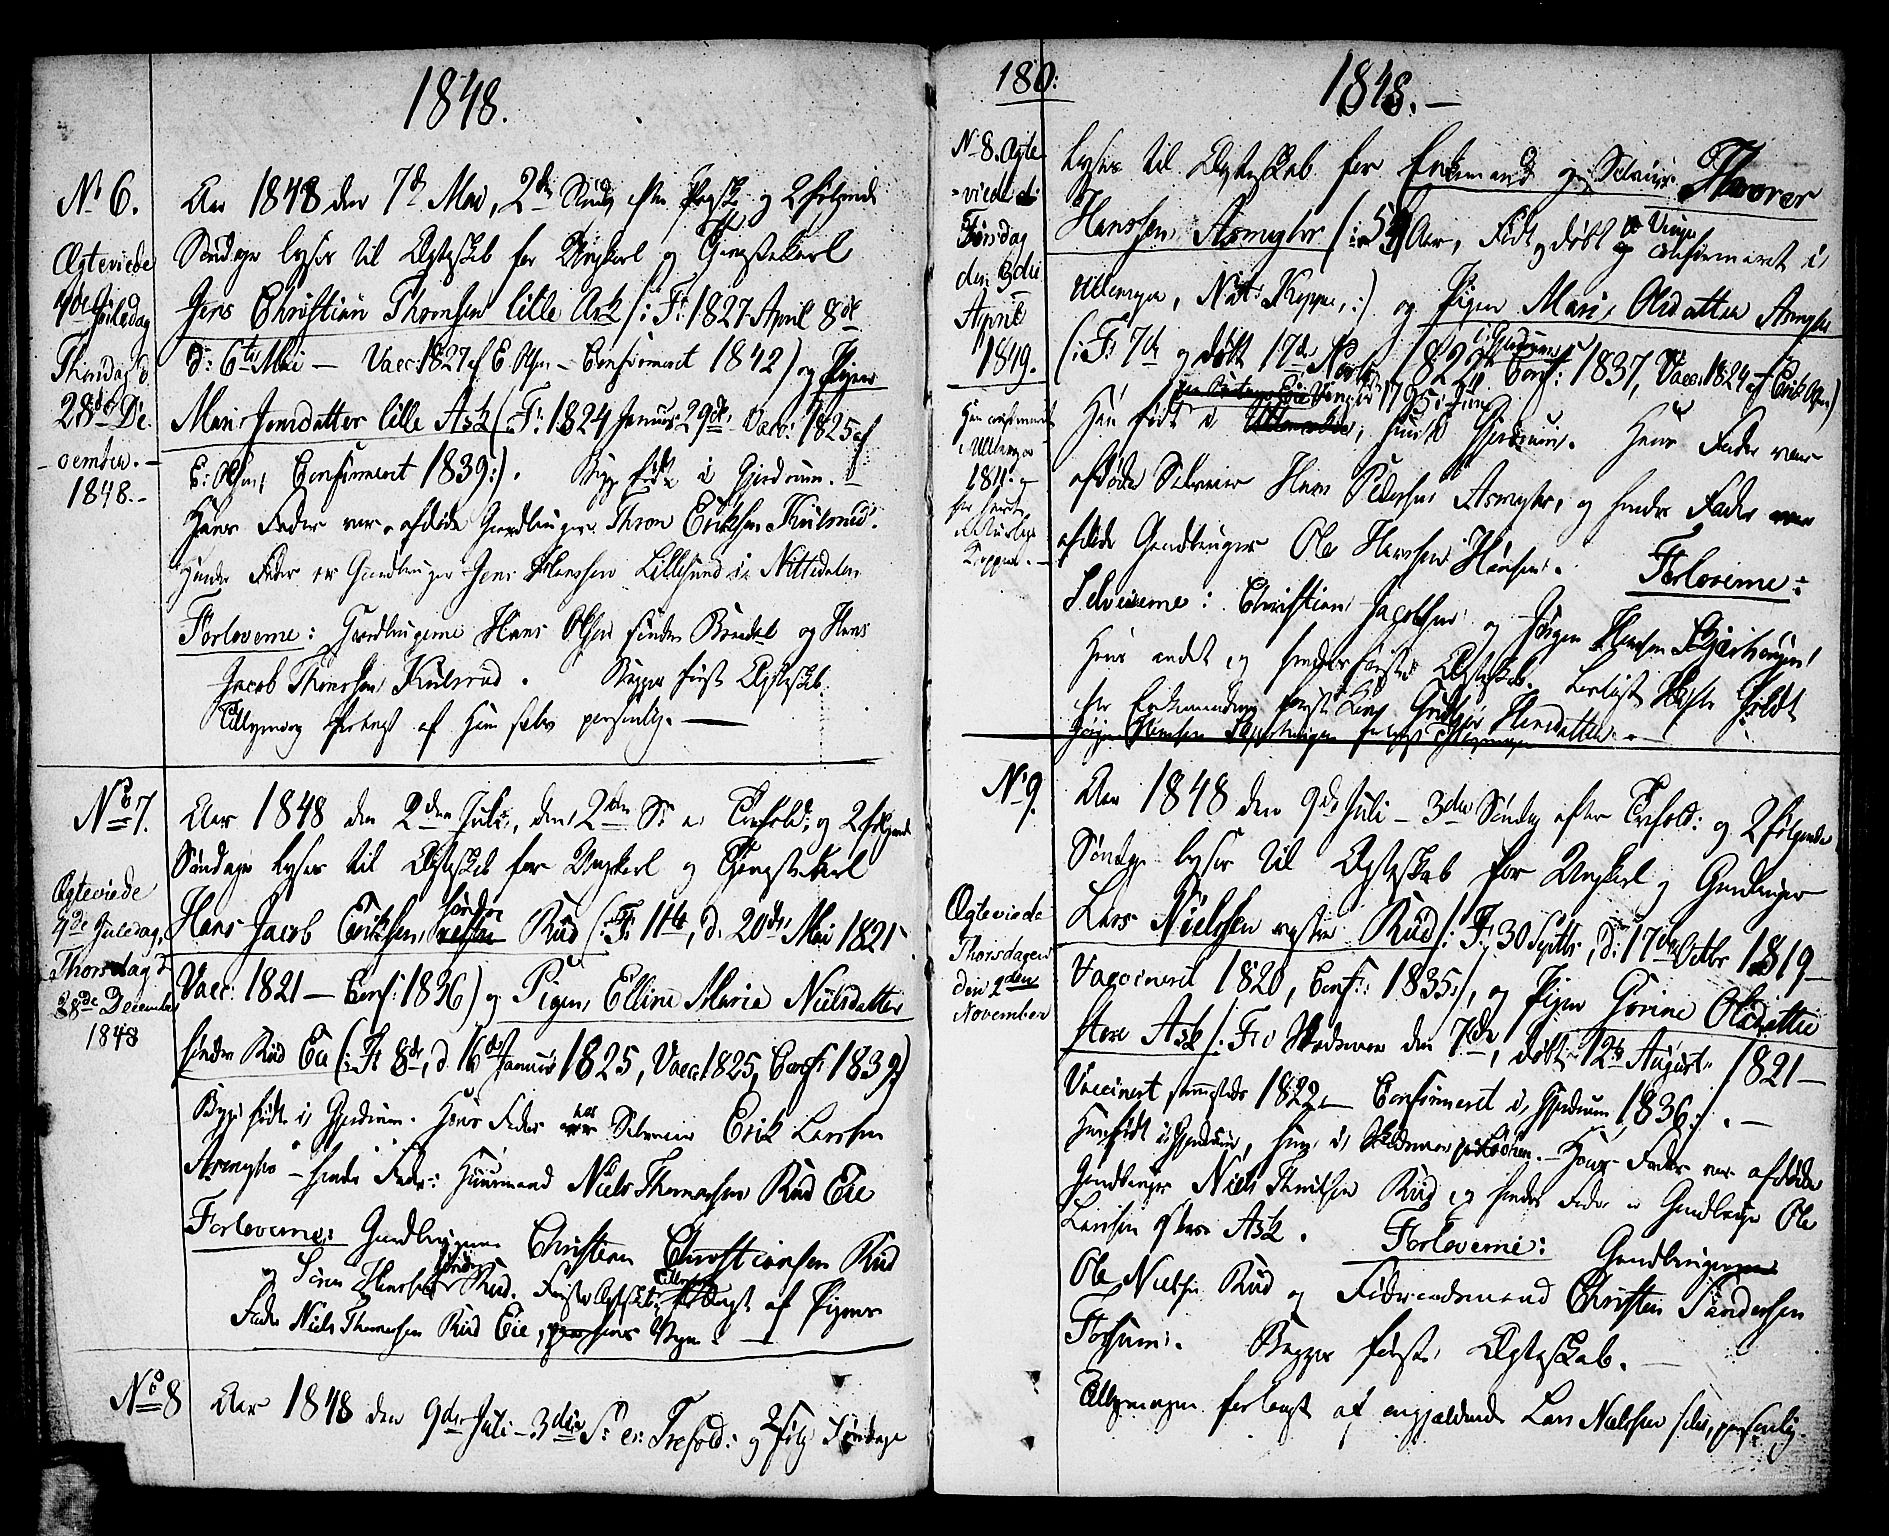 1848.
No 6.
Ægteviede
4de Juledag
Thorsdag d.
28de De
-cember.-
1848.-
Aar 1848 den 7de Mai, 2den Søndag efter Paaske og 2 følgende
Søndage lyser til Ægteskab for Ungkarl og Tjenestekarl
Jens Christian Thronsen lille Ask /: F: 1827 April 8de
d: 6te Mai - Vacc: 1827 af E. Olsen - Confirmeret 1842) og Pigen
Mari Jensdatter lille Ask (: F: 1824 Januar 29de, Vacc: 1825 af
E: Olsen, Confirmeret 1839:). Begge fødte i Gjerdrum.
Hans Fader var afdøde Gaardbruger Thron Eriksen Kulsrud.
Hendes Fader er Gaardbruger Jens Hanssen Lillesund i Nittedalen
Forloverne: Gaardbrugerne Hans Olsen søndre Brædal og Hans
Jacob Thronsen Kulsrud. Begges første Ægteskab.
Tillysning forlangt af Ham selv personlig.-
No 7.
Ægteviede
4de Juledag,
Thorsdag d.
28de December
1848
Aar 1848 den 2den Juli, den 2den S: e: Trefold: og 2 følgende
Søndage lyser til Ægteskab for Ungkarl og Tjenestekarl
søndre
Hans Jacob Eriksen Rud (: F: 11te, d. 20de Mai 1821
Vacc: 1821 - Conf: 1836) og Pigen Elline Marie Nielsdatter
søndre Rud Eie (: F: 8de, d. 16de Januar 1825, Vacc: 1825, Conf: 1839)
Begge fødte i Gjerdrum. Hans Fader er Selveier Erik Larsen
Asmyhr - hendes Fader: Huusmand Niels Thomassen Rud Eie
Forloverne: Gaardbrugerne Christian Christiansen Rud
og Søren Hansen søndre Rud. Første Ægteskab. Tillysning forlangt af Pigens
Fader Niels Thomassen Rud Eie,
No 8 Aar 1848 den 9de Juli - 3die S: e: Trefold: og 2 følg Søndage
180:
1848.-
No 8. Ægte
=viede d:
Tirsdag
den 3die
April
1849.
Han confirmeret
i Ullensager
1811. -
har havt
naturlige
Kopper. -
lyser til Ægteskab for Enkemand og Selveier Thorer
Hanssen Asmyhr (: 54 Aar, Født og døbt og confirmeret i
Ullensager, Nat: Kopper,:) og Pigen Mari Olsdatter Asmyhr
(: F: 7de og døbt 17de 1822 Conf: i Gjerdrum 1837, Vacc: 1824 af Erik Olsen)
Han født i hun i Gjerdrum. Hans Fader var
afdøde Selveier Hans Pedersen Asmyhr, og hendes Fader var
afdøde Gaardbruger Ole Hanssen . Forloverne:
Selveierne: Christian Jacobsen og Jørgen Hansen
Hans andet og hendes første Ægteskab.
No 9.
Ægteviede
Thorsdagen
den 2den
November
Aar 1848 den 9de Juli - 3die Søndag efter Trefold: og 2 følgende
Søndage lyser til Ægteskab for Ungkarl og Gaardbruger
Lars Nielssen vestre Rud /: F: 30 Septbr, D: 17de Octbr 1819 -
Vaccineret 1820, Conf: 1835:/, og Pigen Gorine Olsdatter
store Ask /: F: i Skedsmoe den 7de, døbt 12te August 1821 -
Vaccineret sammesteds 1822 - Confirmeret i Gjerdrum 1836:/. -
Han født i Gjerdrum, hun i Skedsmoe . - Hans Fader var afdøde
Gaardbruger Niels Rud og hendes Fader er Gaardbruger Ole
Larssen store Ask. Forloverne: Gaardbrugerne
Ole Nielsen Rud og Føderaadsmand Christen Sandersen
. Begges første Ægteskab. -
Tillysningen forlangt af angjældende Lars Nielssen selv, personlig.